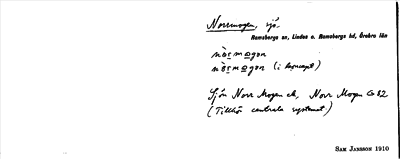 Norrmogen, sjö.
Ramsbergs sn, Lindes o. Ramsbergs hd, Örebro län
nòrmogon
nòrmogon (i koncept)
Sjön Norr Mogen ek, Norr Mogen G 82
(Tillhör centrala systemet)
SAM JANSSON 1910